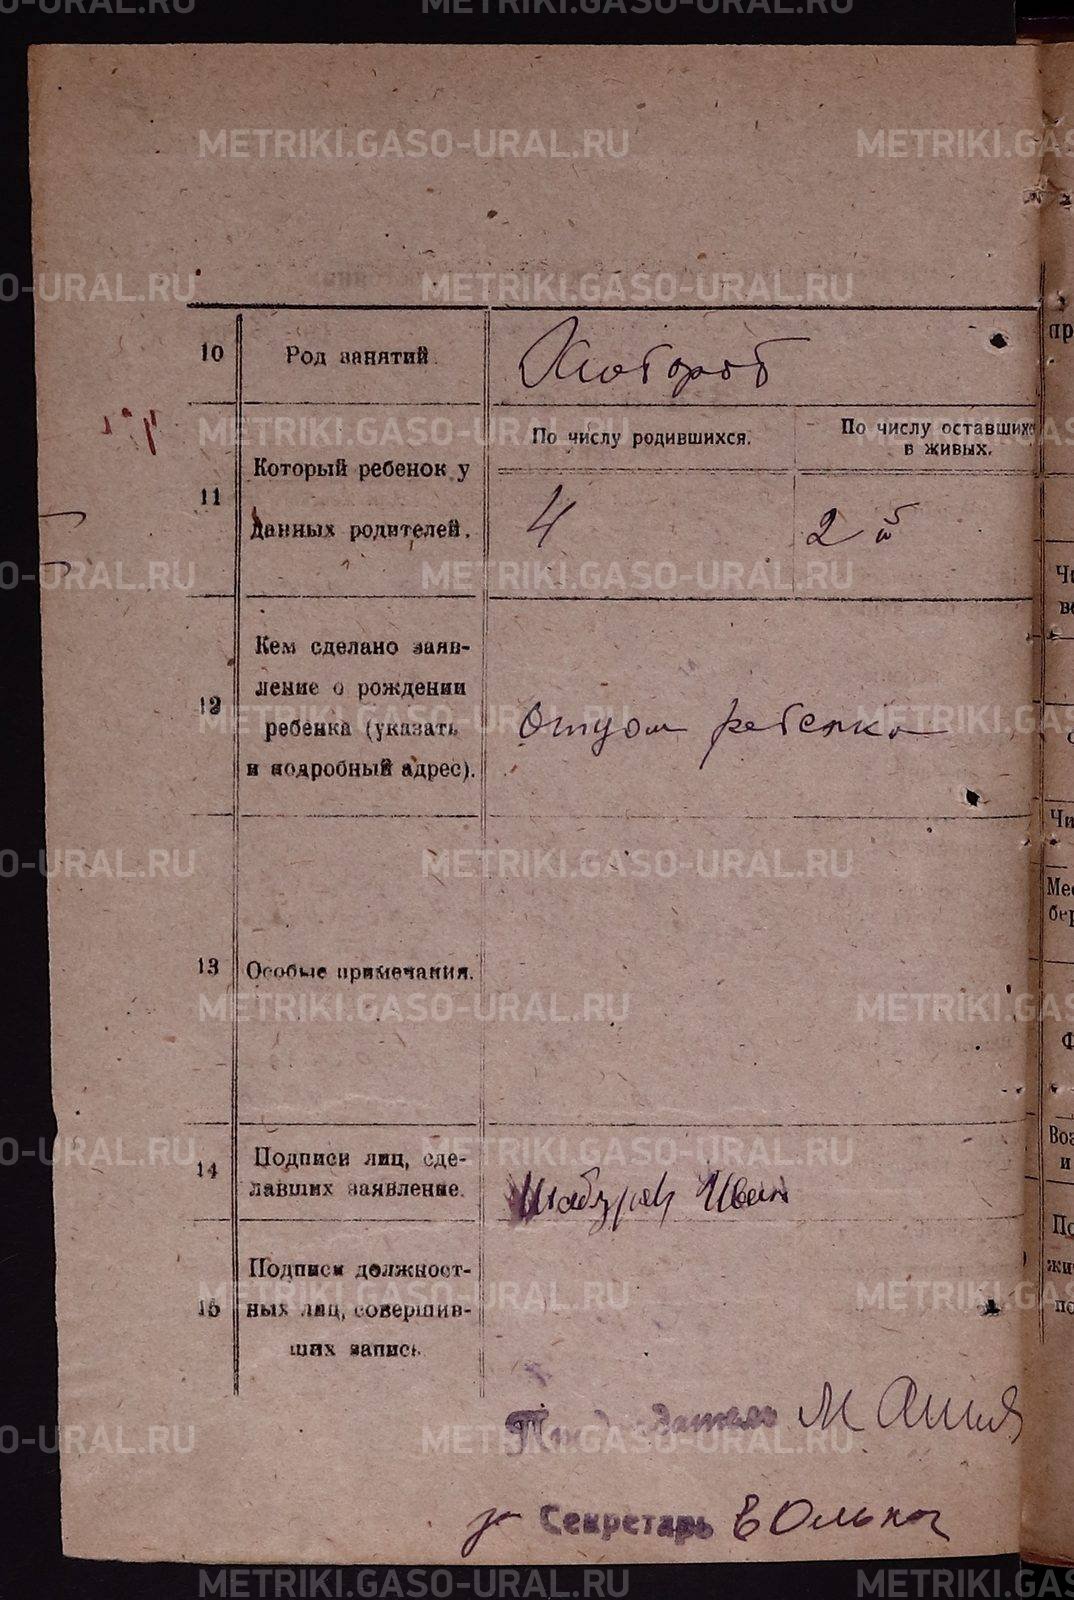 METRIKI.GASO-URAL.RU
10 Род занятий Хлебороб
11 Который ребенок у данных родителей.
По числу родившихся.
По числу оставшихся
в живых.
4
2й
12 Кем сделано заяв-
ление о рождении
ребенка (указать
и подробный адрес).
Отцом ребенка
13 Особые примечания.
14 Подписи лиц, сде-
лавших заявление.
Иван
15 Подписи должност-
ных лиц, совершив-
ших запись
Председатель М
за Секретарь